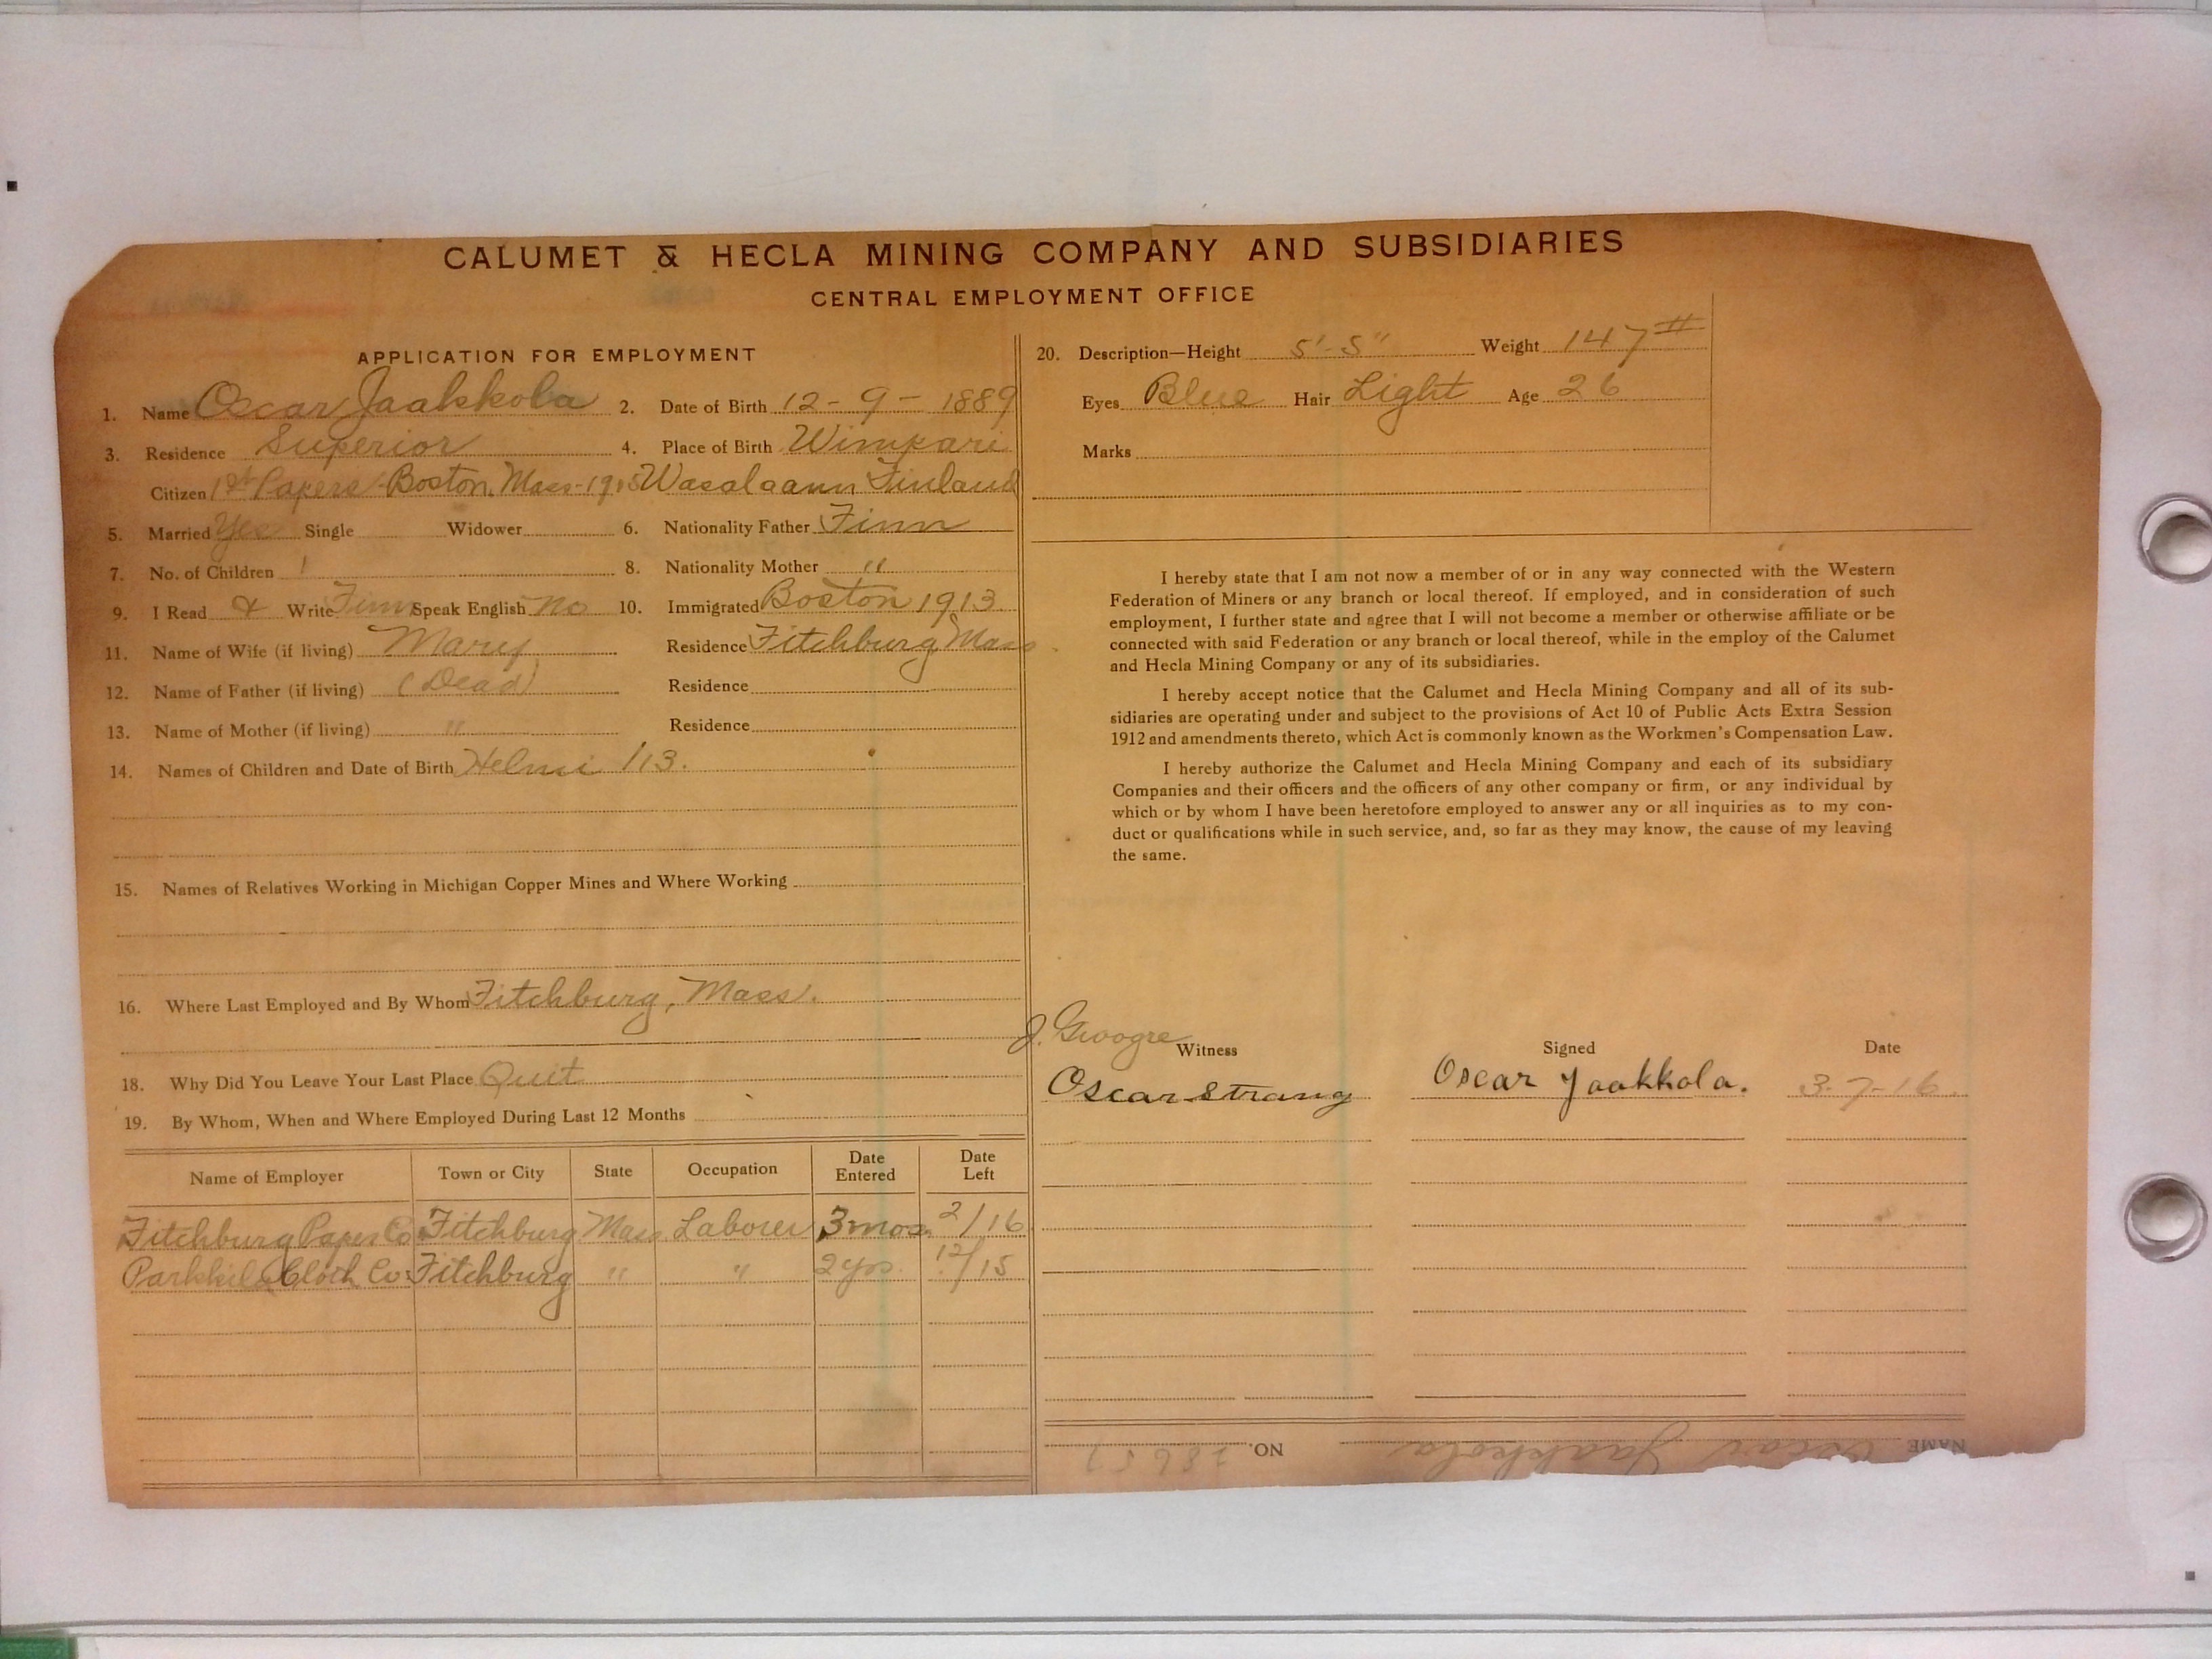 CALUMET & HECLA MINING COMPANY AND SUBSIDIARIES
CENTRAL EMPLOYMENT OFFICE
APPLICATION FOR EMPLOYMENT
1. Name Oscar Jaakkola 2. Date of Birth 12-9-1889
3. Residence Superior 4. Place of Birth Wimpari
Citizen 1st Papers Boston, Mass-1915 Wasalaann Finland
5. Married Yes Single Widower 6. Nationality Father Finn
7. No. of Children 1 8. Nationality Mother "
9. I Read & Write Finn Speak English No 10. Immigrated Boston 1913
11. Name of Wife (if living) Mary Residence Fitchburg Mass
12. Name of Father (if living) (Dead) Residence
13. Name of Mother (if living) " Residence
14. Names of Children and Date of Birth Helmi 1/13.
15. Names of Relatives Working in Michigan Copper Mines and Where Working
16. Where Last Employed and By Whom Fitchburg, Mass.
18. Why Did You Leave Your Last Place Quit
19. By Whom, When and Where Employed During Last 12 Months
Name of Employer Town or City State Occupation Date Entered Date Left
Fitchburg Paper Co Fitchburg Mass Laborer 3 mos 2/16
Cloth Co. Fitchburg " " 2 yrs. 12/15
20. Description—Height 5'-5" Weight 147#
Eyes Blue Hair Light Age 26
Marks
I hereby state that I am not now a member of or in any way connected with the Western
Federation of Miners or any branch or local thereof. If employed, and in consideration of such
employment, I further state and agree that I will not become a member or otherwise affiliate or be
connected with said Federation or any branch or local thereof, while in the employ of the Calumet
and Hecla Mining Company or any of its subsidiaries.
I hereby accept notice that the Calumet and Hecla Mining Company and all of its sub-
sidiaries are operating under and subject to the provisions of Act 10 of Public Acts Extra Session
1912 and amendments thereto, which Act is commonly known as the Workmen's Compensation Law.
I hereby authorize the Calumet and Hecla Mining Company and each of its subsidiary
Companies and their officers and the officers of any other company or firm, or any individual by
which or by whom I have been heretofore employed to answer any or all inquiries as to my con-
duct or qualifications while in such service, and, so far as they may know, the cause of my leaving
the same.
J.
Witness Signed Date
Oscar Strang Oscar Jaakkola. 3-7-16.
NAME Oscar Jaakkola NO.